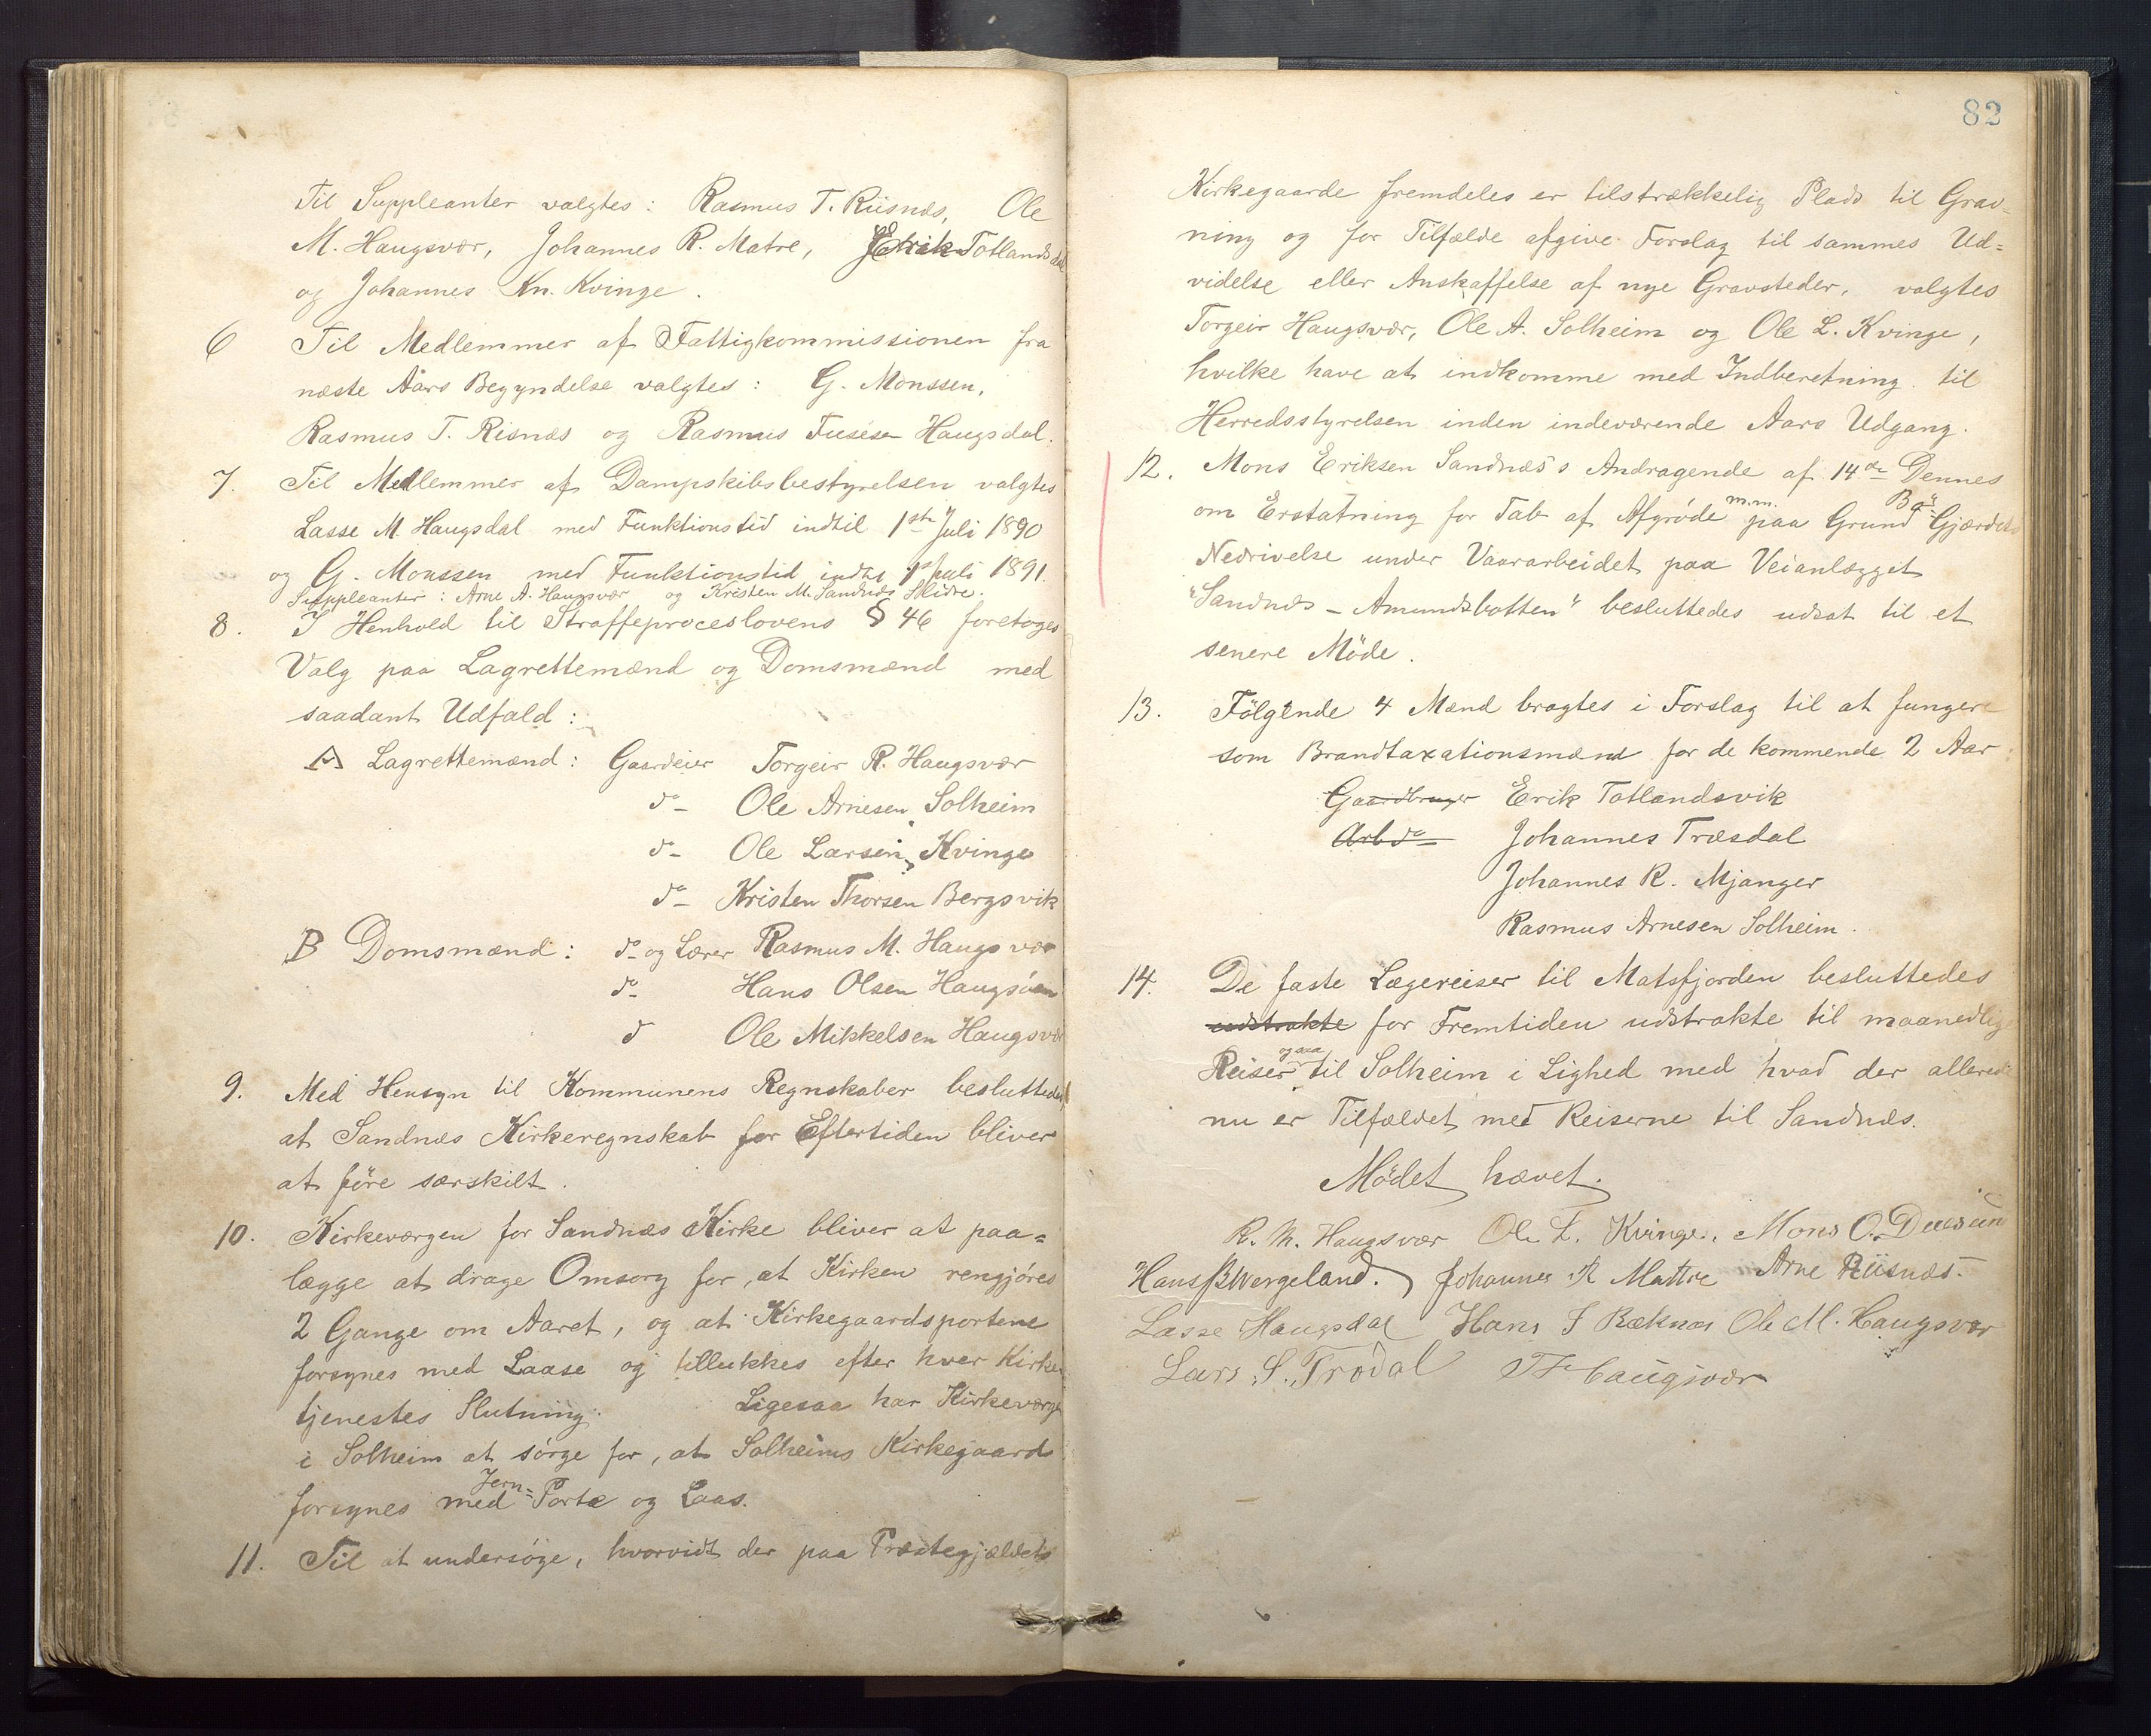 Til Suppleanter valgtes: Rasmus T. Riisnæs, Ole
M. Haugsvær, Johannes R. Matre, Erik Totlandsdal
og Johannes Kn. Kvinge.
6 Til Medlemmer af Fattigkommissionen fra
næste Aars Begyndelse valgtes: G. Monssen,
Rasmus T. Risnæs og Rasmus Haugsdal.
7. Til Medlemmer af Dampskibsbestyrelsen valgtes
Lasse M Haugsdal med Funktionstid indtil 1ste Juli 1890
og G. Monssen med Funktionstid indtil 1ste Juli 1891.
Suppleanter: Arne A. Haugsvær og Kristen M. Sandnæs Slidre.
8. I Henhold til Straffeproceslovens § 46 foretoges
Valg paa Lagrettemænd og Domsmænd med
saadant Udfald:
A Lagrettemænd: Gaardeier Torgeir R. Haugsvær
do Ole Arnesen Solheim
do Ole Larsen Kvinge
do Kristen Thorsen Bergsvik
B Domsmænd: do og Lærer Rasmus M. Haugsvær
do Hans Olsen Haugsöen
do Ole Mikkelsen Haugsvær
9. Med Hensyn til Kommunens Regnskaber besluttedes,
at Sandnæs Kirkeregnskab for Eftertiden bliver
at före særskilt.
10. Kirkeværgen for Sandnæs Kirke bliver at paa=
lægge at drage Omsorg for, at Kirken rengjöres
2 Gange om Aaret, og at Kirkegaardsportene
forsynes med Laase og tillukkes efter hver Kirke
tjenestes Slutning. Ligesaa har Kirkeværgen
i Solheim at sörge for, at Solheims Kirkegaard
forsynes med Jern=Porte og Laas.
11. Til at undersöge, hvorvidt der paa Præstegjældets
82
Kirkegaarde fremdeles er tilstrækkelig Plads til Grav-
ning og for Tilfælde afgive Forslag til sammes Ud=
videlse eller Anskaffelse af nye Gravsteder, valgtes
Torgeir Haugsvær, Ole A. Solheim og Ole L. Kvinge,
hvilke have at indkomme med Indberetning til
Herredsstyrelsen inden indeværende Aars Udgang.
12. Mons Eriksen Sandnæs's Andragende af 14de Dennes
om Erstatning for Tab af Afgröde m.m. paa Grund Gjærdets
Nedrivelse under Vaararbeidet paa Veianlægget
"Sandnæs - Amundsbotten" besluttedes udsat til et
senere Möde.
13. Fölgende 4 Mænd bragtes i Forslag til at fungere
som Brandtaxationsmænd for de kommende 2 Aar
Gaardbruger Erik Totlandsvik
Arb do Johannes Træsdal
Johannes R. Mjanger
Rasmus Arnesen Solheim.
14. De faste Lægereiser til Matsfjorden besluttedes
udstrakte for Fremtiden udstrakte til maanedlige
Reiser ogsaa til Solheim i Lighed med hvad der allerede
nu er Tilfældet med Reiserne til Sandnæs.
Mödet hævet.
R. M. Haugsvær Ole L. Kvinge. Mons O.
Hans B Wergeland. Johannes R Mattre Arne Riisnæs.
Lasse Haugsdal Hans I Ræknæs Ole M. Haugsvær
Lars S. Trodal T Haugsvær